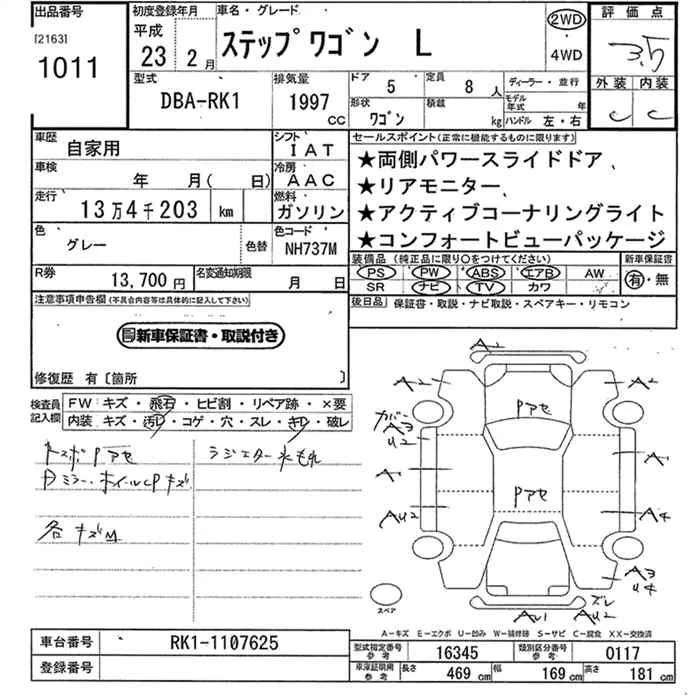 出品番号 初度登録年月 車名・グレード 評価点
[2163] 平成 ステップワゴン L 2WD 3.5
1011 23 2月 4WD
型式 排気量 ドア 5 定員 8人 ディーラー・並行 外装 内装
DBA-RK1 1997cc 形状 ワゴン 積載 kg モデル年式 年 C C
ハンドル 左・右
車歴 自家用 シフト IAT セールスポイント(正常に機能するものに限ります)
車検 年 月( 日) 冷房 AAC ★両側パワースライドドア、
★リアモニター、
走行 13万4千203 km 燃料 ガソリン ★アクティブコーナリングライト
色 グレー 色替 色コード NH737M ★コンフォートビューパッケージ
装備品 (純正品に限り○をつけてください) 新車保証書
R券 13,700円 名変通知期限 月 日 PS PW ABS エアB AW 有・無
SR ナビ TV カワ
注意事項申告欄(不具合内容等は具体的に記入して下さい) 後日品 保証書・取説・ナビ取説・スペアキー・リモコン
新車保証書・取説付き
修復歴 有〔箇所 〕
検査員記入欄 FW キズ・飛石・ヒビ割・リペア跡・×要
内装 キズ・汚レ・コゲ・穴・スレ・キレ・破レ
ラジエター水もれ
ドミラー・ホイールCPキズ
各キズM
A2
A2 Pアセ A2
カバーA3
U2
A1 Pアセ A1
AU2 A4
A3
U4
ズレ
AU1 AU2
スペア
A-キズ E-エクボ U-凹み W-補修跡 S-サビ C-腐食 XX-交換済
車台番号 RK1-1107625 型式指定番号 参考 16345 類別区分番号 参考 0117
登録番号 車庫証明用 参考 長さ 469 cm 幅 169 cm 高さ 181 cm